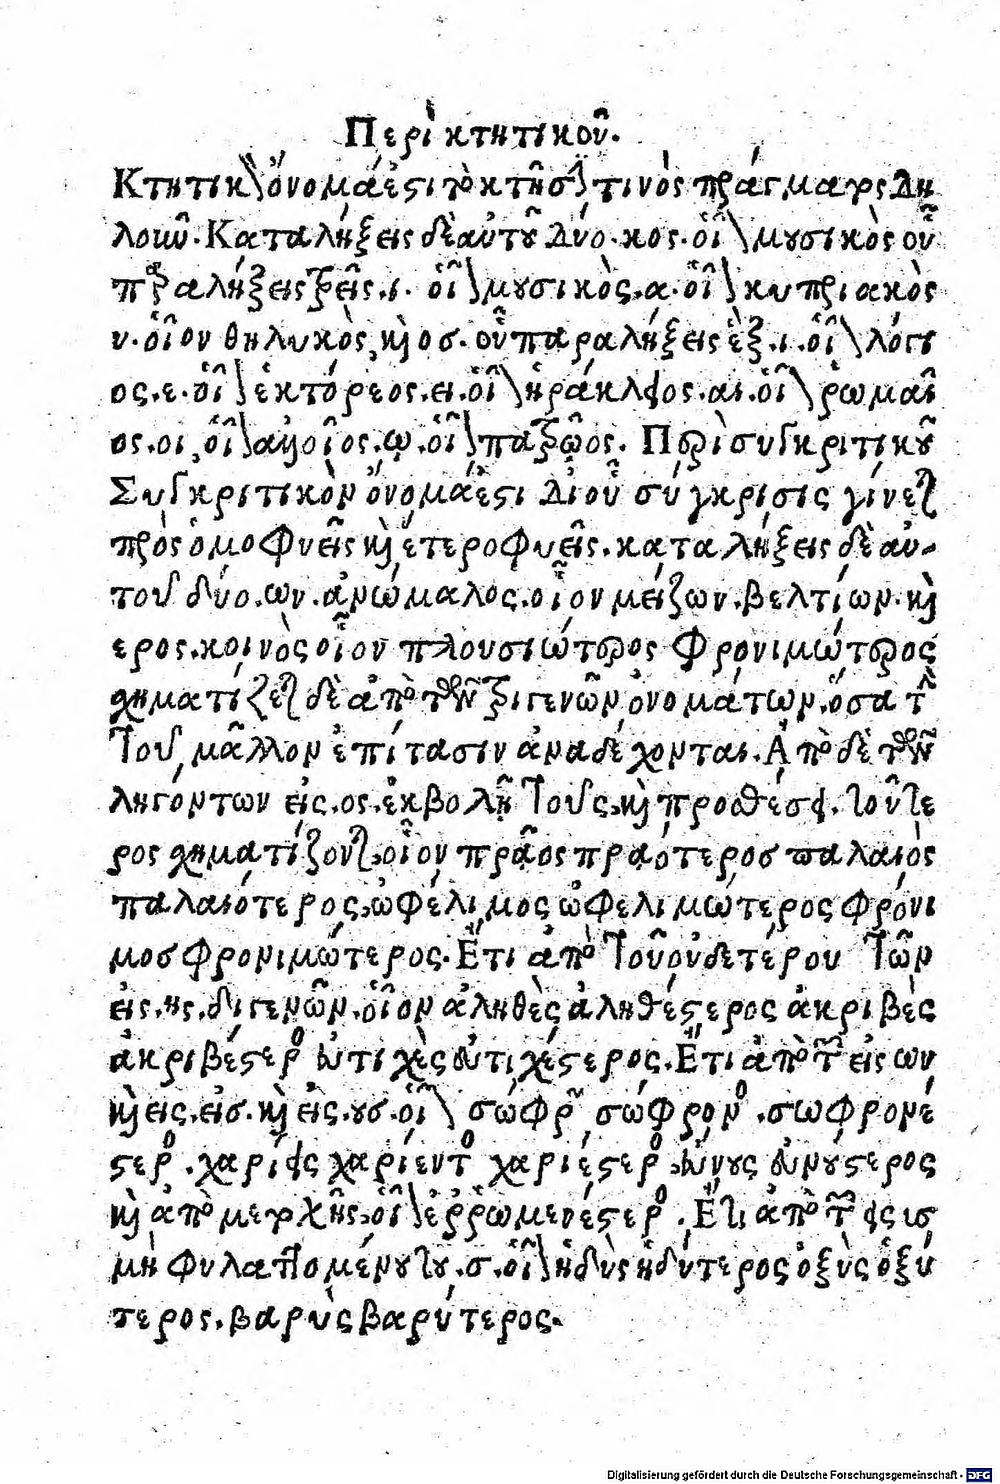 Περὶ κτητικοῦ.
Κτητικὸν ὄνομά ἐστι τὸ κτῆσίν τινὸς πράγματος δη
λοῦν. Καταλήξεις δὲ αὐτοῦ δύο. κος. οἷον μουσικὸς οὗ
παραλήξεις τρεῖς. ι. οἷον μουσικὸς. α. οἷον κυπριακὸς
υ. οἷον θηλυκὸς, καὶ οσ. οὗ παραλήξεις ἓξ. ι. οἷον λόγι
ος. ε. οἷον ἑκτόρεος. ει. οἷον ἡράκλειος. αι. οἷον ῥωμαῖ
ος. οι. οἷον αἰδοῖος. ῳ. οἷον πατρῷος. Περὶ συγκριτικοῦ
Συγκριτικὸν ὄνομά ἐστι δι οὗ σύγκρισις γίνεται
πρὸς ὁμοφυεῖς καὶ ἑτεροφυεῖς. καταλήξεις δὲ αὐ-
τοῦ δύο. ων. ἀνώμαλος. οἷον μείζων. βελτίων. καὶ
ερος. κοινὸς οἷον πλουσιώτερος φρονιμώτερος
σχηματίζεται δὲ ἀπὸ τῶν τριγενῶν ὀνομάτων. ὅσα τὴν
τοῦ μᾶλλον ἐπίτασιν ἀναδέχονται. Ἀπὸ δὲ τῶν
ληγόντων εἰς. ος. ἐκβολῇ τοῦ ς. καὶ προσθέσει. τοῦ τε
ρος σχηματίζονται, οἷον πρᾶος πραότερος παλαιὸς
παλαιότερος, ὠφέλιμος ὠφελιμώτερος φρόνι
μοσ φρονιμώτερος. Ἔτι ἀπὸ τοῦ οὐδετέρου τῶν
εἰς. ης. διγενῶν. οἷον ἀληθὲς ἀληθέστερος ἀκριβὲς
ἀκριβέστερος εὐτιχὲς εὐτιχέστερος. Ἔτι ἀπὸ τῶν εἰς ων
καὶ εις. εἰσ. καὶ εἰς. ουσ. οἷον σώφρων σώφρονος. σωφρονέ
στερος. χαρίεις χαρίεντος χαριέστερος, εὔνους εὐνούστερος
καὶ ἀπὸ μετοχῆς, οἷον ἐῤῥωμενέστερος. Ἔτι ἀπὸ τῶν εἰς ισ
μὴ φυλαττομένου του. σ. οἷον ἡδὺς ἡδύτερος ὀξὺς ὀξύ
τερος. βαρὺς βαρύτερος.
Digitalisierung gefördert durch die Deutsche Forschungsgemeinschaft - DFG